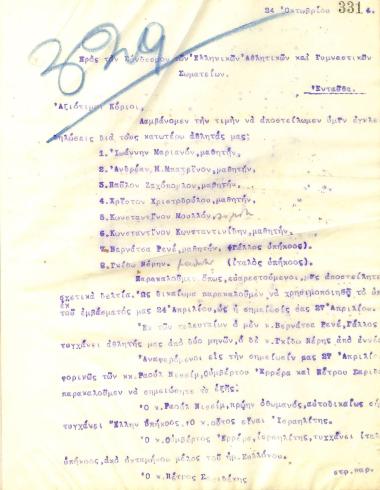 24 Ὀκτωβρίου 331 4.
3029
Πρὸς τὸν Σύνδεσμον τῶν Ἑλληνικῶν Ἀθλητικῶν καὶ Γυμναστικῶν
Σωματείων.
Ἐνταῦθα.
Ἀξιότιμοι Κύριοι,
Λαμβάνομεν τὴν τιμὴν νὰ ἀποστείλωμεν ὑμῖν
δηλώσεις διὰ τοὺς κατωτέρω ἀθλητάς μας:
1. Ἰωάννην Μαριανόν, μαθητήν,
2. Ἀνδρέαν, Μ. Μπατρῖνον, μαθητήν,
3. Παῦλον μαθητήν,
4. Χρῖστον μαθητήν,
5. Κωνσταντῖνον
6. Κωνσταντῖνον Κωνσταντινίδην, μαθητήν,
7. Βαρνάτσα Ρενέ, μαθητήν (Γάλλος ὑπήκοος).
8. Γκίδω (ἰταλὸς ὑπήκοος).
Παρακαλοῦμεν ὅπως, εὐαρεστούμενοι, μᾶς ἀποστείλητε
σχετικὰ δελτία. Ὡς δικαίωμα παρακαλοῦμεν νὰ χρησιμοποιηθῇ τὸ
ἐκ
τοῦ ἐμβάσματός μας 24 Ἀπριλίου, ὡς ἡ σημείωσίς σας 27 Ἀπριλίου.
Ἐκ τῶν τελευταίων ὁ μὲν κ. Βερνάτσα Ρενέ, Γάλλος
τυγχάνει ἀθλητής μας ἀπὸ δύο μηνῶν, ὁ δὲ κ. Γκίδω ἀπὸ
Ἀναφερόμενοι εἰς τὴν σημείωσίν μας 27
φορικῶς τῶν κκ. Ραοὺλ Νισσίμ, Οὐμβέρτου Ἐρρέρα καὶ Πέτρου
παρακαλοῦμεν νὰ σημειώσητε τὸ ἑξῆς:
Ὁ κ. Ραοὺλ Νισσίμ, πρώην ὀθωμανός, αὐτοδικαίως
τυγχάνει Ἕλλην ὑπήκοος. Ὁ κ. οὗτος εἶναι Ἰσραηλίτης.
Ὁ κ. Οὐμβέρτος Ἐρρέρα, ἰσραηλίτης, τυγχάνει
ὑπήκοος, ἀπὸ ὀκταμήνου μέλος τοῦ ἡμ. Συλλόγου.
Ὁ κ. Πέτρος
στρ. παρ.